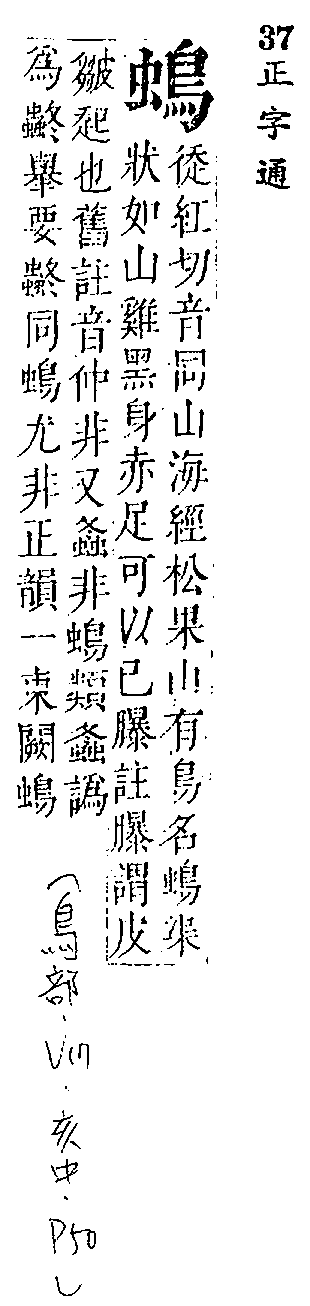 37正字通
䳋
徒紅切音同山海經松果山有鳥名䳋渠
狀如山雞黑身赤足可以已𦢊註𦢊謂皮
皺起也舊註音仲非又螽非䳋類螽譌
為舉要同䳋尤非正韻一東闕䳋
（鳥部．．亥中．P50）